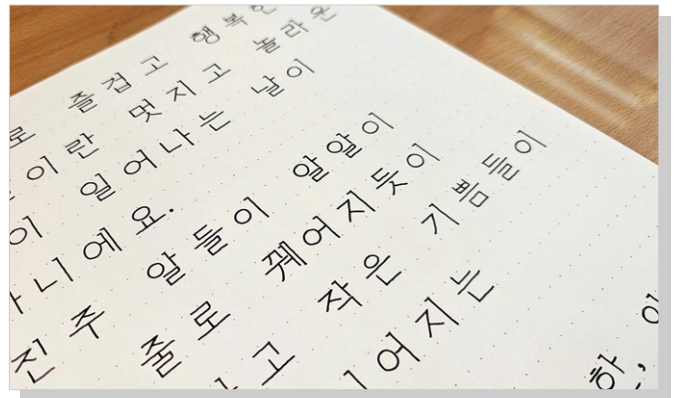 로 즐겁고 행복한
이란 멋지고 놀라운
이 일어나는 날이
아니에요.
진주 알들이 알알이
줄로 꿰어지듯이
고 작은 기쁨들이
이어지는
한,